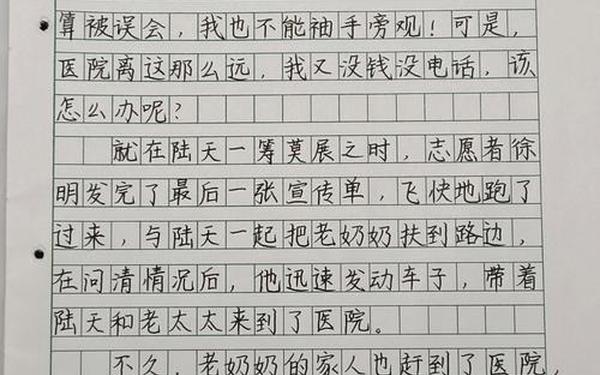 算被误会，我也不能袖手旁观！可是，
医院离这那么远，我又没钱没电话，该
怎么办呢？
就在陆天一筹莫展之时，志愿者徐
明发完了最后一张宣传单，飞快地跑了
过来，与陆天一起把老奶奶扶到路边，
在问清情况后，他迅速发动车子，带着
陆天和老太太来到了医院。
不久，老奶奶的家人也赶到了医院，